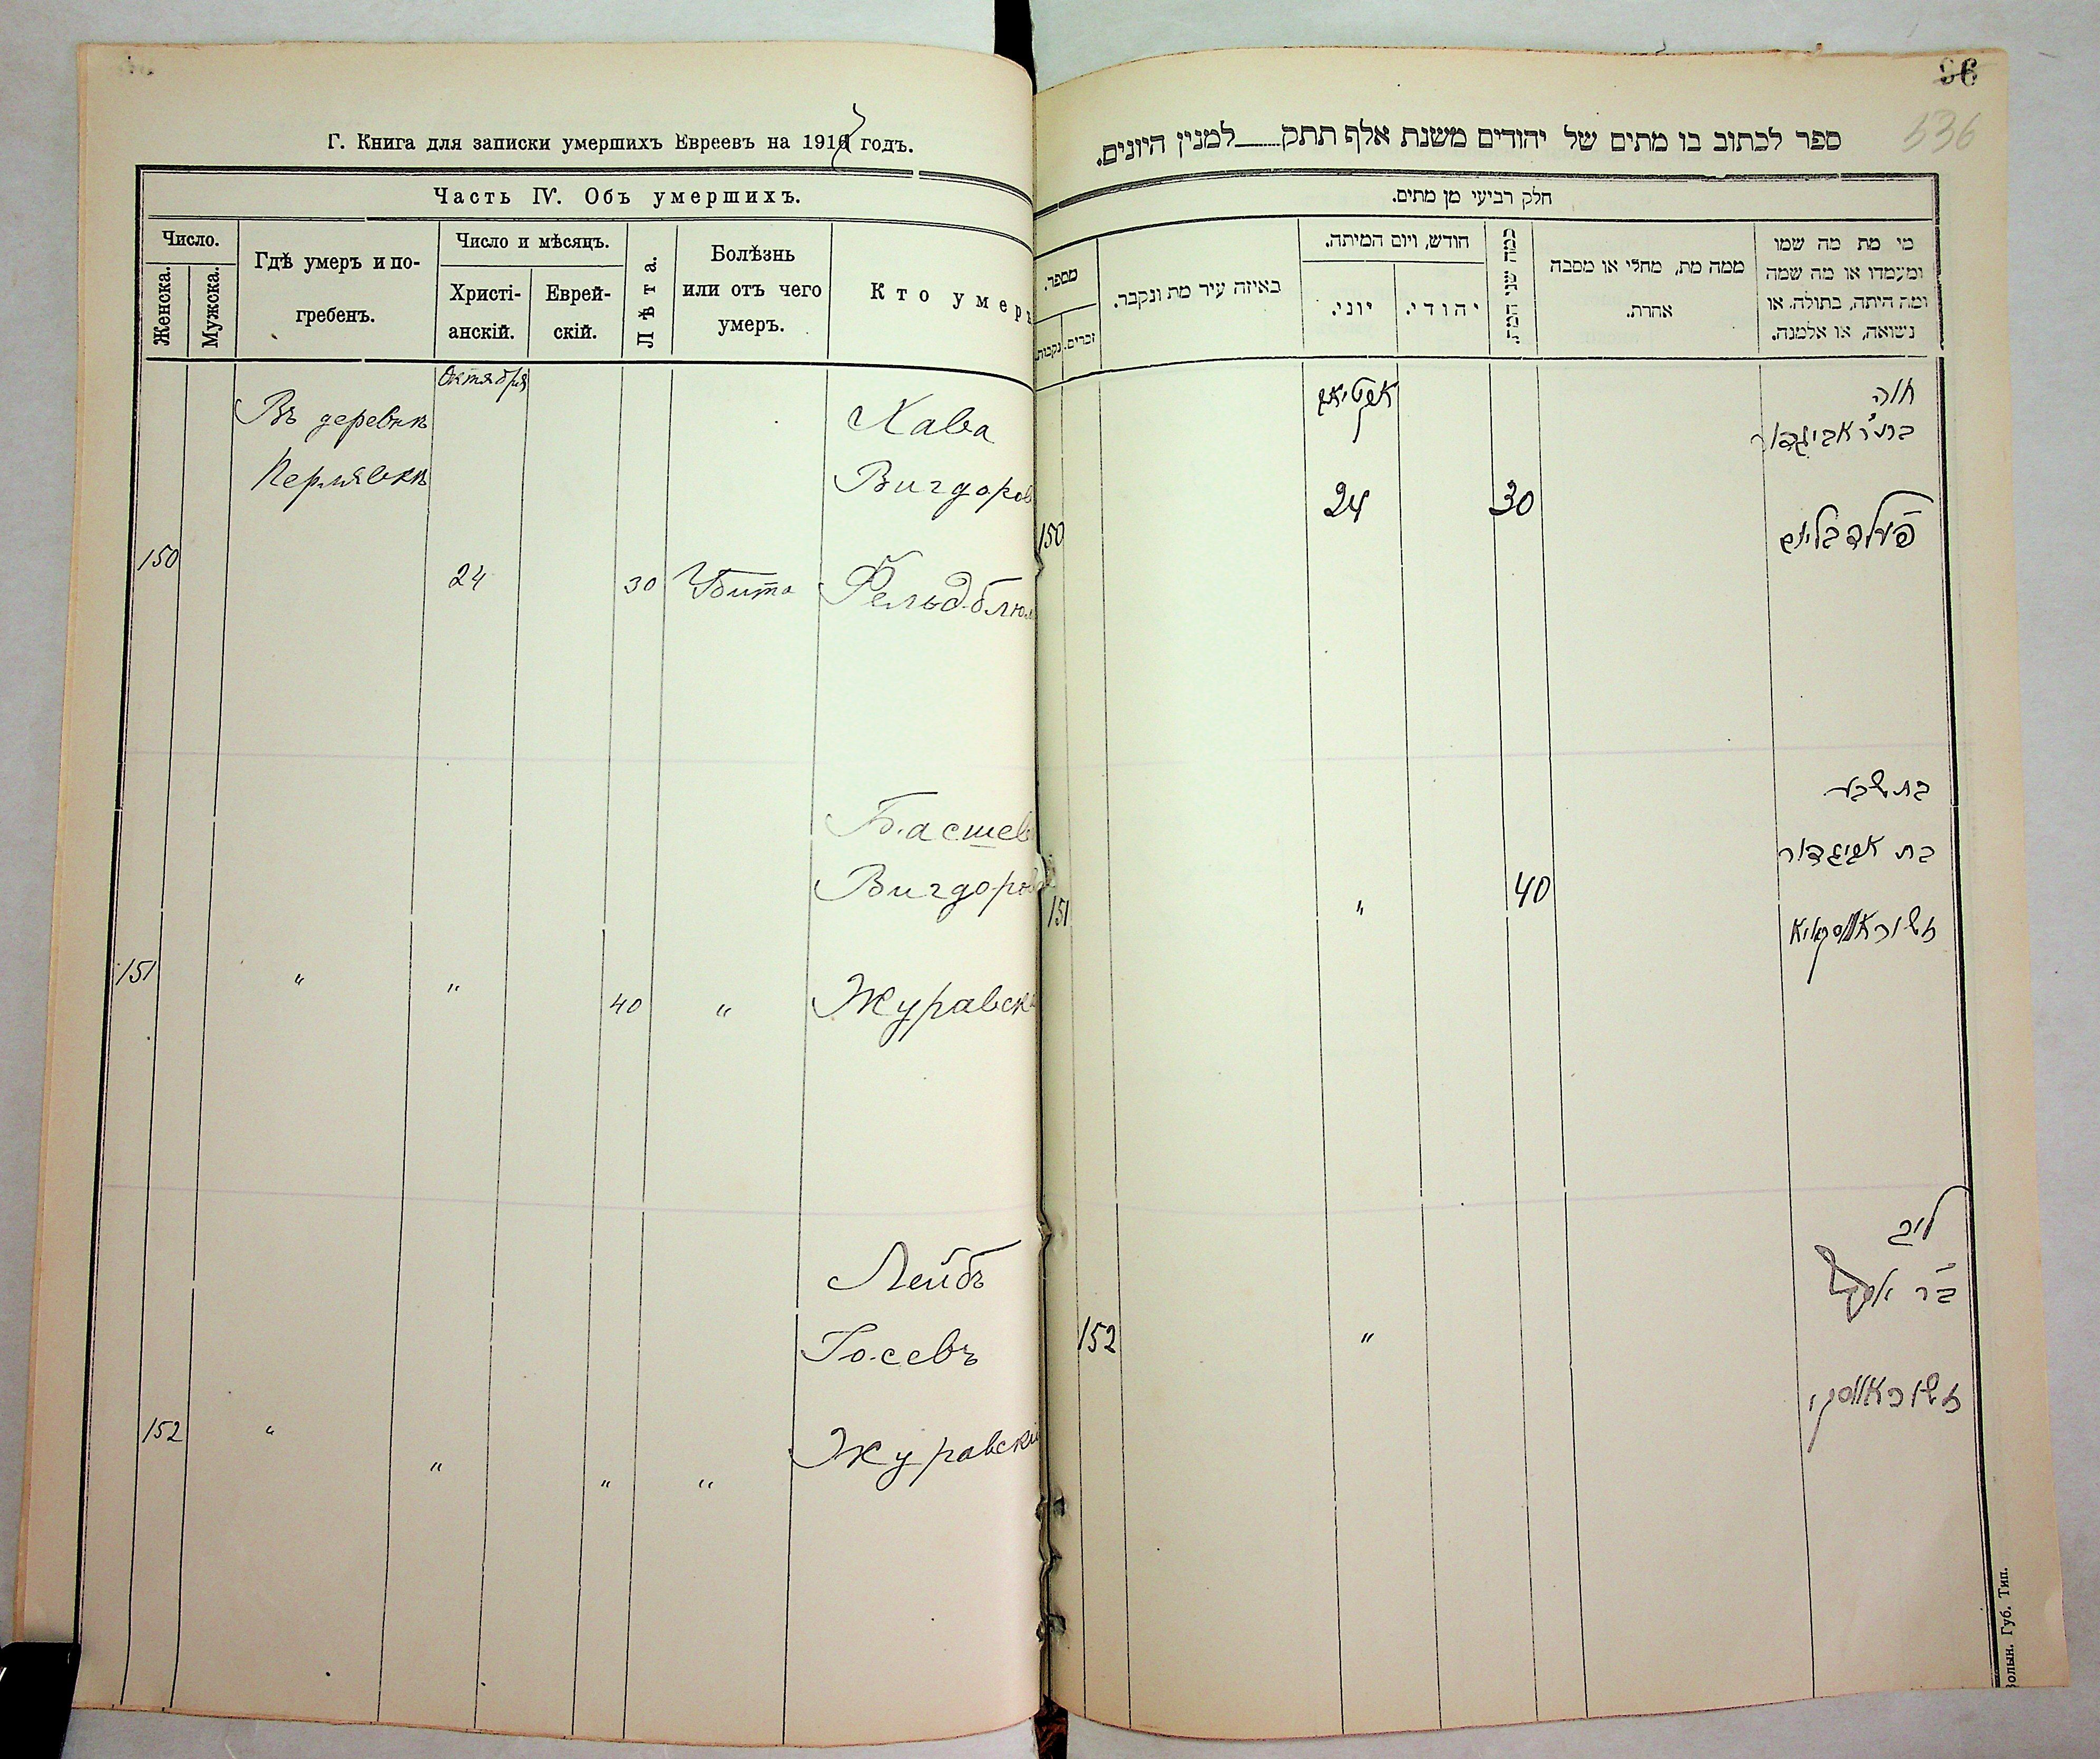 Г. Книга для записки умершихъ Евреевъ на 191 годъ.
Часть IV. Объ умершихъ.
Число.
Женска.
Мужска.
Гдѣ умеръ и по-
гребенъ.
Число и мѣсяцъ.
Христі-
анскій.
Еврей-
скій.
Лѣта.
Болѣзнь
или отъ чего
умеръ.
Кто умеръ
Октября
Въ деревнѣ
Хава
Вигдоров
150
24
30
Убита
Фельдблюм
Басшев
Вигдоров
151
"
"
40
"
Журавск
Лейбъ
Іосевъ
152
"
"
"
"
Журавскі
96
536
ספר לכתוב בו מתים של יהודים משנת אלף תתק___למנין היונים.
חלק רביעי מן מתים.
מי מת מה שמו
ומעמדו או מה שמה
ומה היתה, בתולה, או
נשואה, או אלמנה.
ממה מת, מחלי או מסבה
אחרת.
כמה שני המת.
חודש, ויום המיתה.
יהודי.
יוני.
באיזה עיר מת ונקבר.
מספר.
זכרים.
נקבות.
חוה
אביגדור
24
30
150
פעלדבליום
בת שבע
בת אביגדור
40
"
151
זשוראווסקאיא
ליב
ב"ר יוסף
152
"
זשוראווסקי
Волын. Губ. Тип.